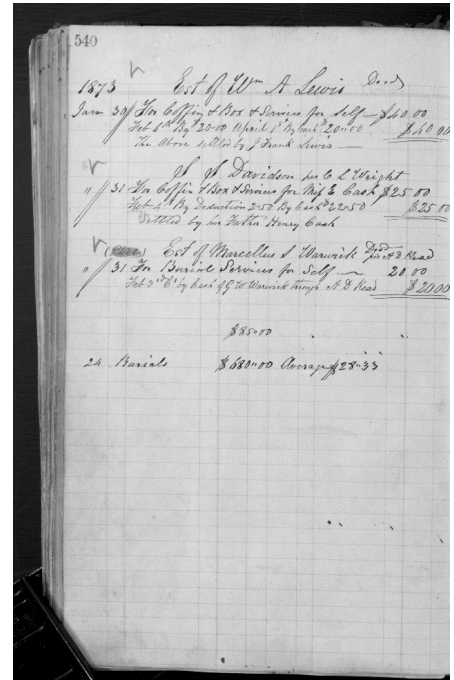 540
1873 Est of Wm A Lewis Decd
Jan 30 For Coffin & Box & Services for Self — $40.00
Feb 6th By $20.00 April 5th By Cash $20.00 $40.00
The above settled by J Frank Lewis —
J J Davidson per C L Wright
" 31 For Coffin & Box & Services for Wife E Cash $25.00
Feb 4 By Deduction 2.50 By Cash $22.50 $25.00
Settled by her Father Henry Cash
Est of Marcellus S Warwick Decd per A D Read
" 31 For Burial Services for Self — 20.00
Feb 3rd Cr by Cash of G W Warwick through A D Read $20.00
$85.00
24 Burials $680.00 Average $28.33